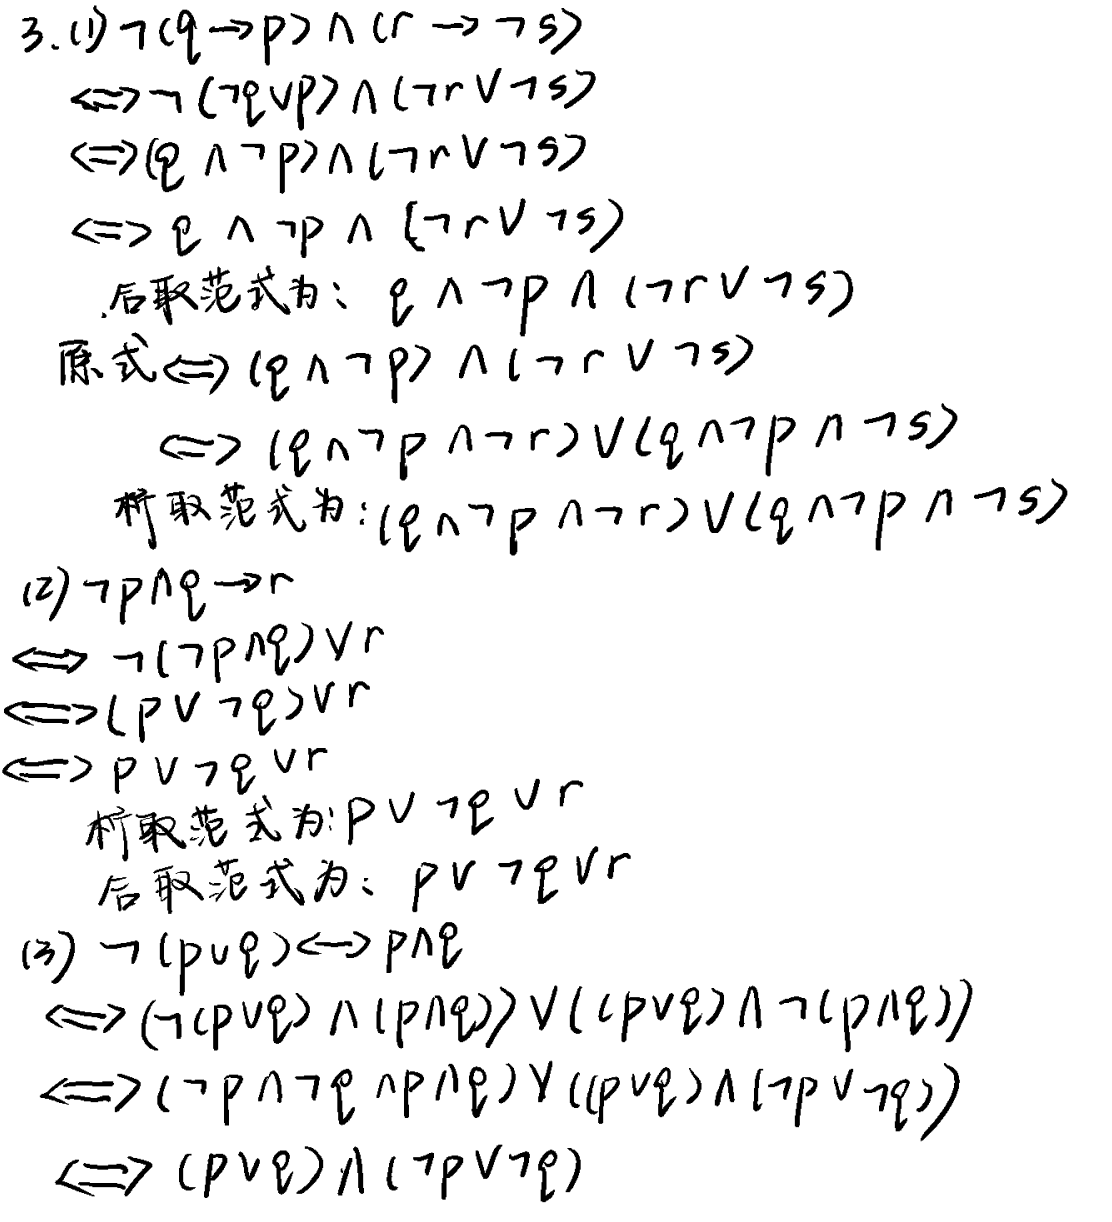 3.(1)¬(q→p)∧(r→¬s)
⇔¬(¬q∨p)∧(¬r∨¬s)
⇔(q∧¬p)∧(¬r∨¬s)
⇔q∧¬p∧(¬r∨¬s)
.后取范式为：q∧¬p∧(¬r∨¬s)
原式⇔(q∧¬p)∧(¬r∨¬s)
⇔(q∧¬p∧¬r)∨(q∧¬p∧¬s)
析取范式为:(q∧¬p∧¬r)∨(q∧¬p∧¬s)
(2)¬p∧q→r
⇔¬(¬p∧q)∨r
⇔(p∨¬q)∨r
⇔p∨¬q∨r
析取范式为:p∨¬q∨r
后取范式为：p∨¬q∨r
(3)¬(p∨q)↔p∧q
⇔(¬(p∨q)∧(p∧q))∨((p∨q)∧¬(p∧q))
⇔(¬p∧¬q∧p∧q)∨((p∨q)∧(¬p∨¬q))
⇔(p∨q)∧(¬p∨¬q)